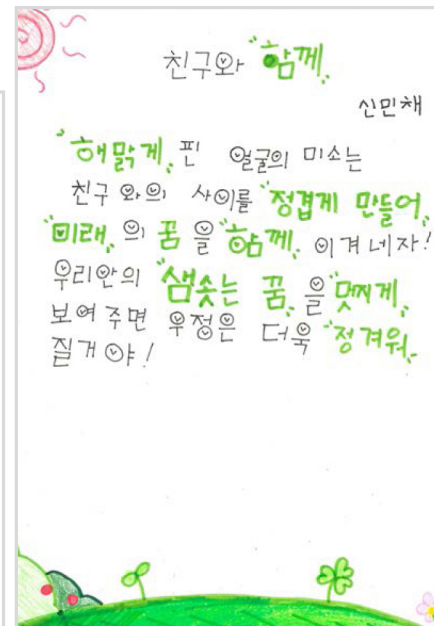 친구와 "함께"
신민채
"해맑게" 핀 얼굴의 미소는
친구와의 사이를 "정겹게 만들어"
"미래"의 꿈을 "함께" 이겨네자!
우리안의 "샘솟는 꿈"을 "멋찌게"
보여주면 우정은 더욱 "정겨워"
질거야!